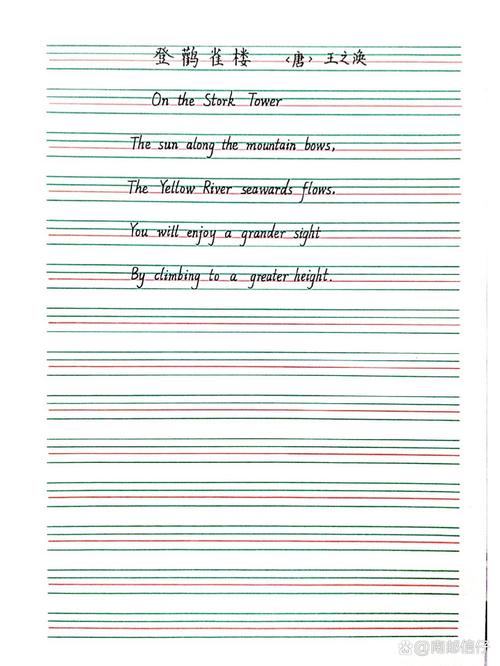 登鹳雀楼 〈唐〉 王之涣
On the Stork Tower
The sun along the mountain bows,
The Yellow River seawards flows.
You will enjoy a grander sight
By climbing to a greater height.
@南邮信仔